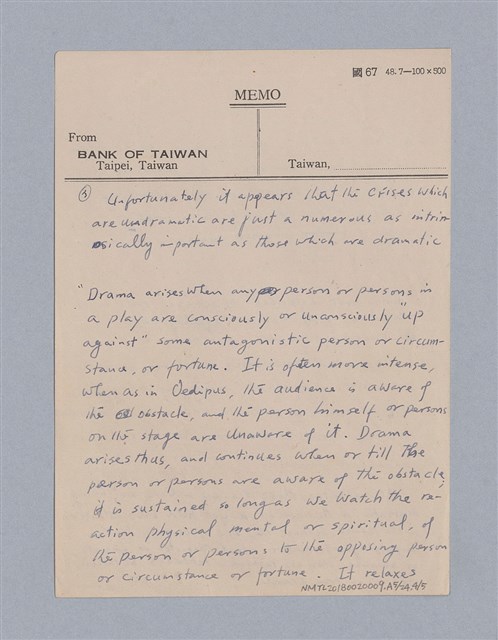 國 67 48.7—100×500
MEMO
From
BANK OF TAIWAN
Taipei, Taiwan
Taiwan,
③ Unfortunately it appears that the crises which
are undramatic are just a numerous as intrin-
sically important as those which are dramatic
"Drama arises when any person or persons in
a play are consciously or unconsciously "up
against" some antagonistic person or circum-
stance, or fortune. It is often more intense,
when as in Oedipus, the audience is aware of
the obstacle, and the person himself or persons
on the stage are unaware of it. Drama
arises thus, and continues when or till the
person or persons are aware of the obstacle;
it is sustained so long as we watch the re-
action physical mental or spiritual, of
the person or persons to the opposing person
or circumstance or fortune. It relaxes
NMTL20180020009.A5/24.4/5